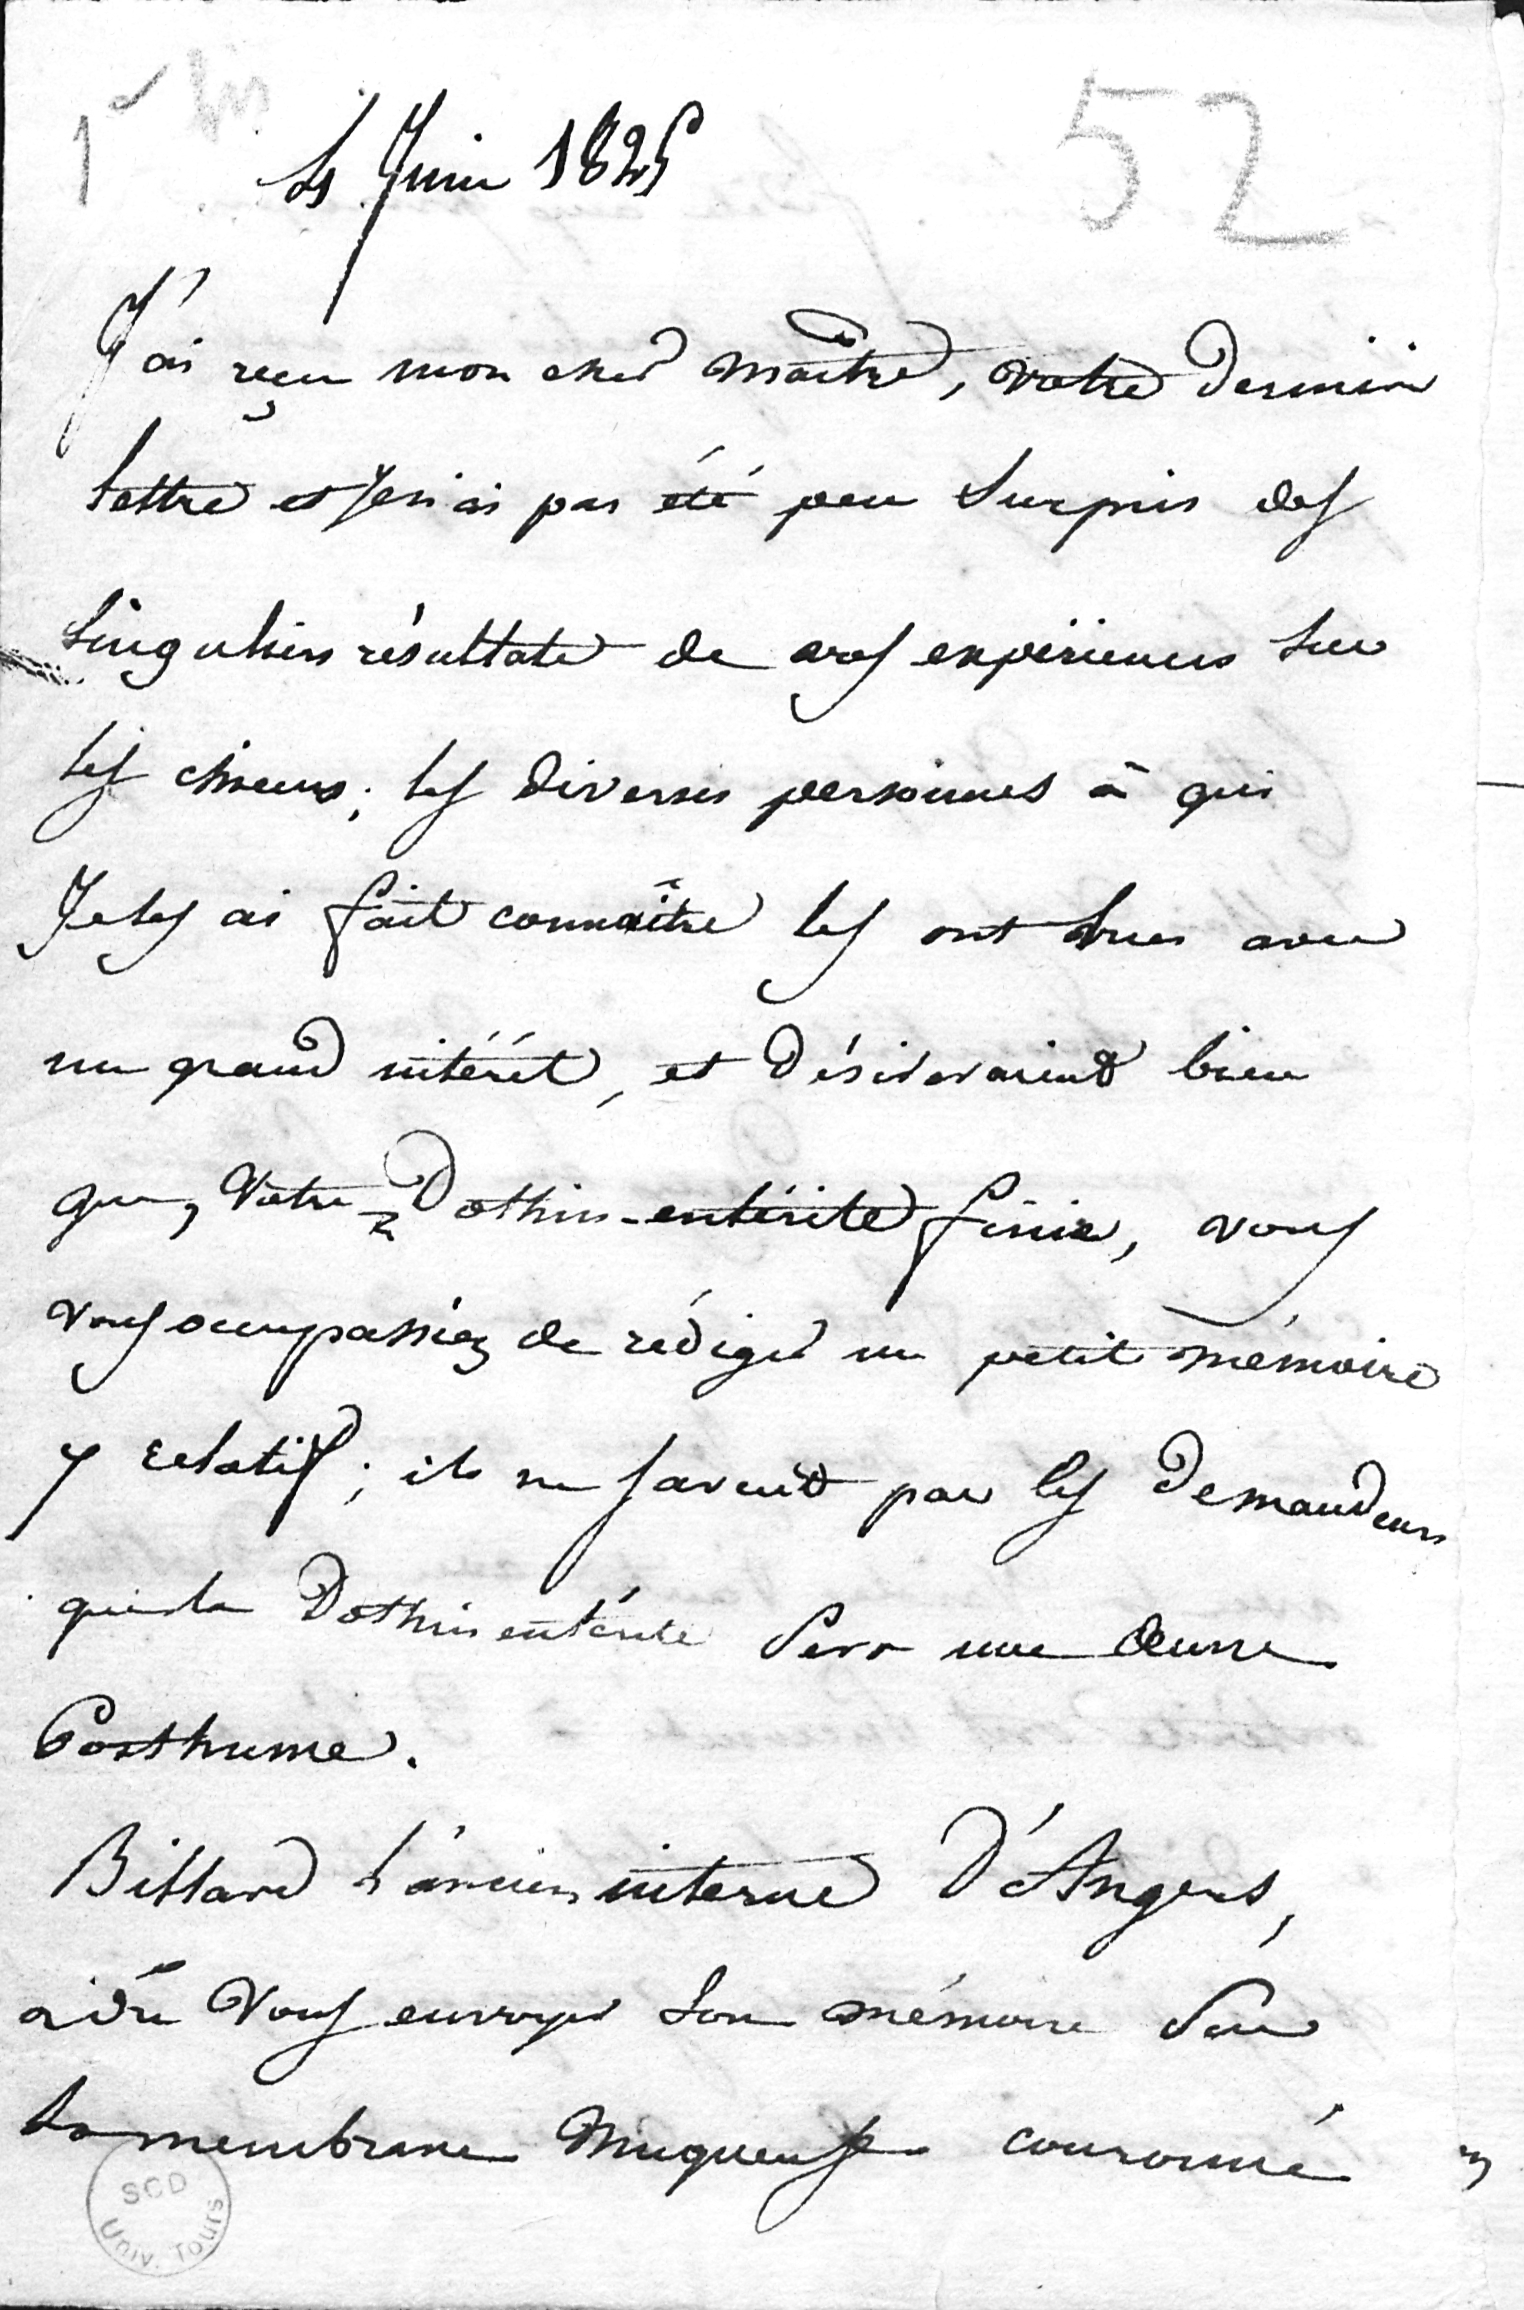 52
4 Juin 1825
J'ai reçu mon cher maître, votre dernière
lettre et je n'ai pas été peu surpris des
singuliers résultats de vos expériences sur
les chiens; les diverses personnes à qui
Je les ai fait connaître les ont lues avec
un grand intérêt, et désireraient bien
que, votre Dothin-entérite finie, vous
vous occupassiez de rédiger un petit mémoire
y relatif; ils ne savent pas les demandeurs
que la Dothinentérite sera une œuvre
Posthume.
Billard l'ancien interne D'Angers,
a dû vous envoyer son mémoire sur
la membrane Muqueuse couronné
SCD
Univ. Tours